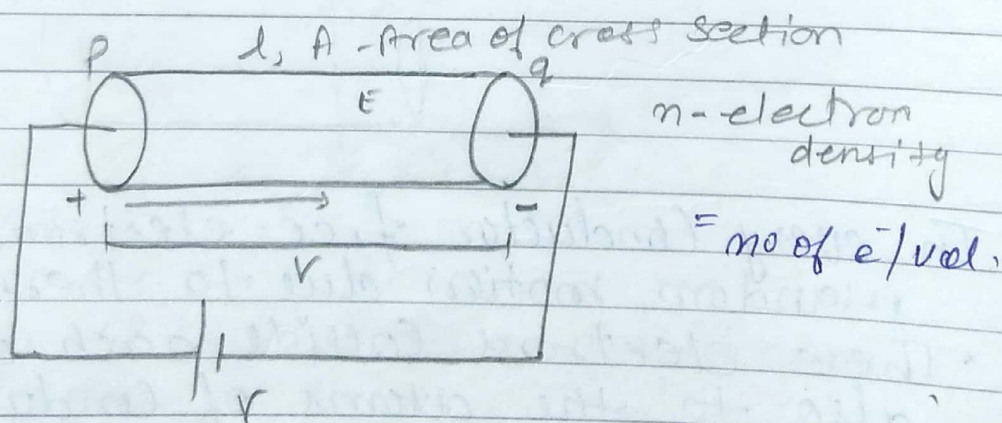 l, A - Area of cross section
P
q
E
n - electron
density
= no of e⁻/vol.
+
-
V
V